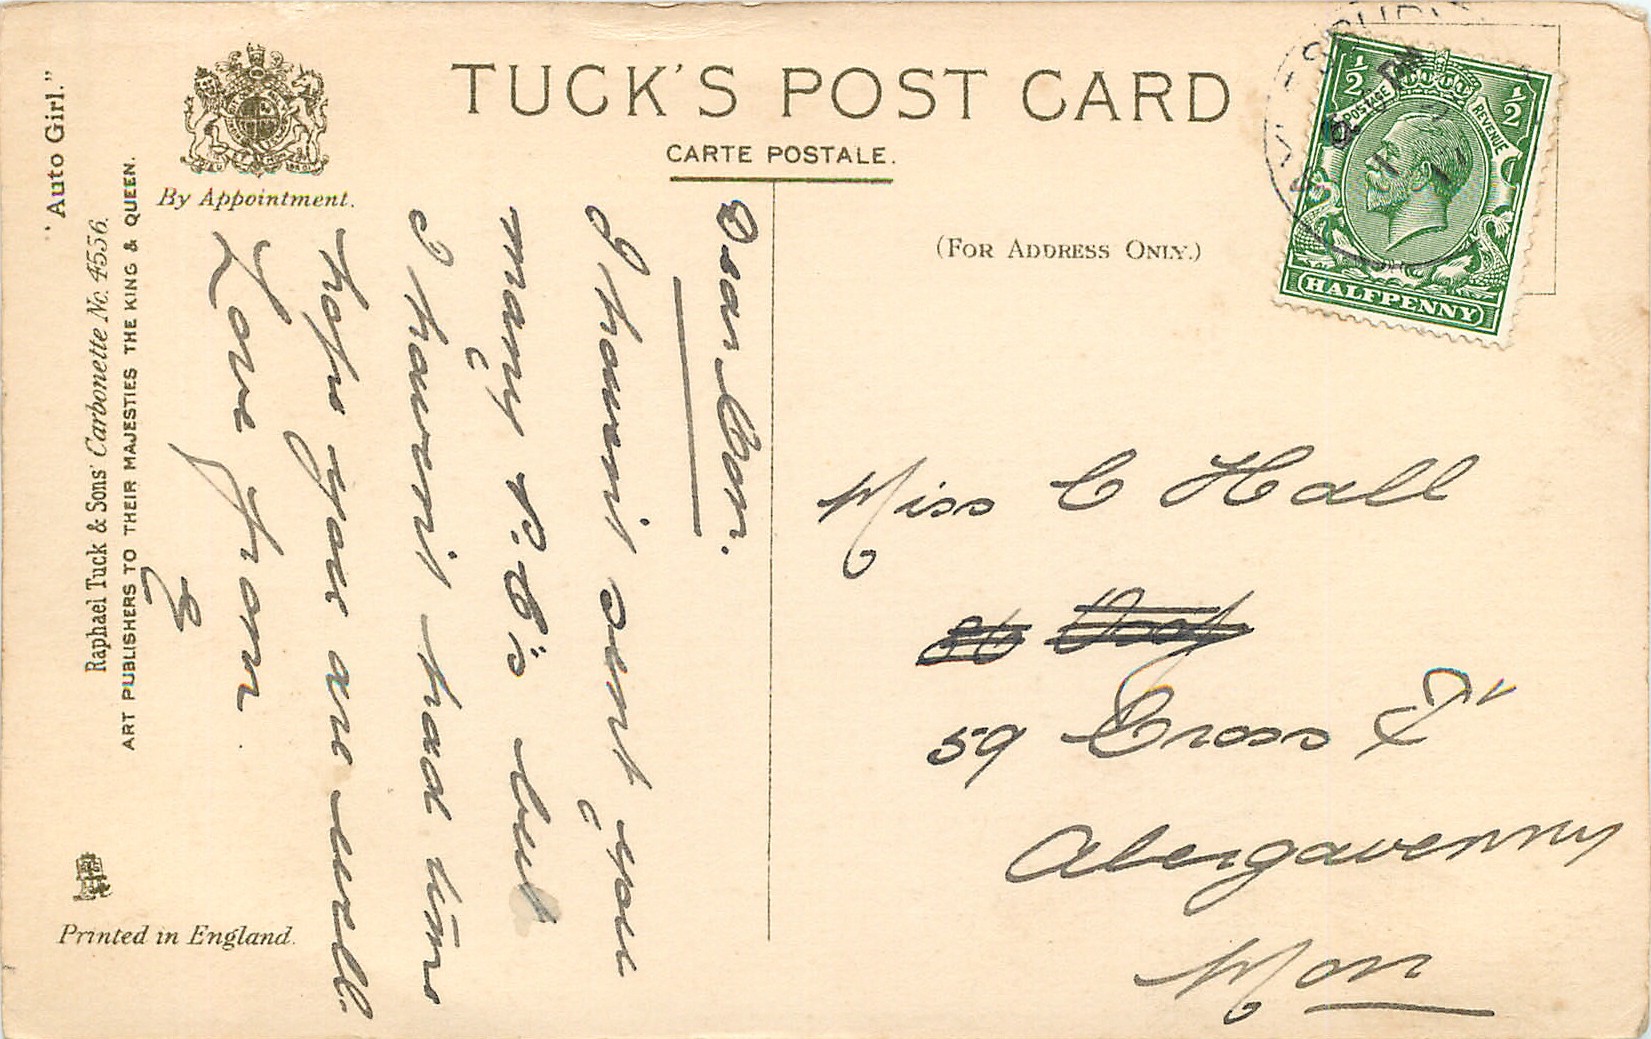 TUCK'S POST CARD
CARTE POSTALE.
(FOR ADDRESS ONLY.)
By Appointment.
"Auto Girl."
Raphael Tuck & Sons' Carbonette No. 4556.
ART PUBLISHERS TO THEIR MAJESTIES THE KING & QUEEN.
Printed in England.
½ ½
POSTAGE REVENUE
HALFPENNY
Dear Con.
I havent sent you
many P.C's but
I havent had time
hope you are well.
Love from
G
Miss C Hall
59 Cross St
Abergavenny
Mon